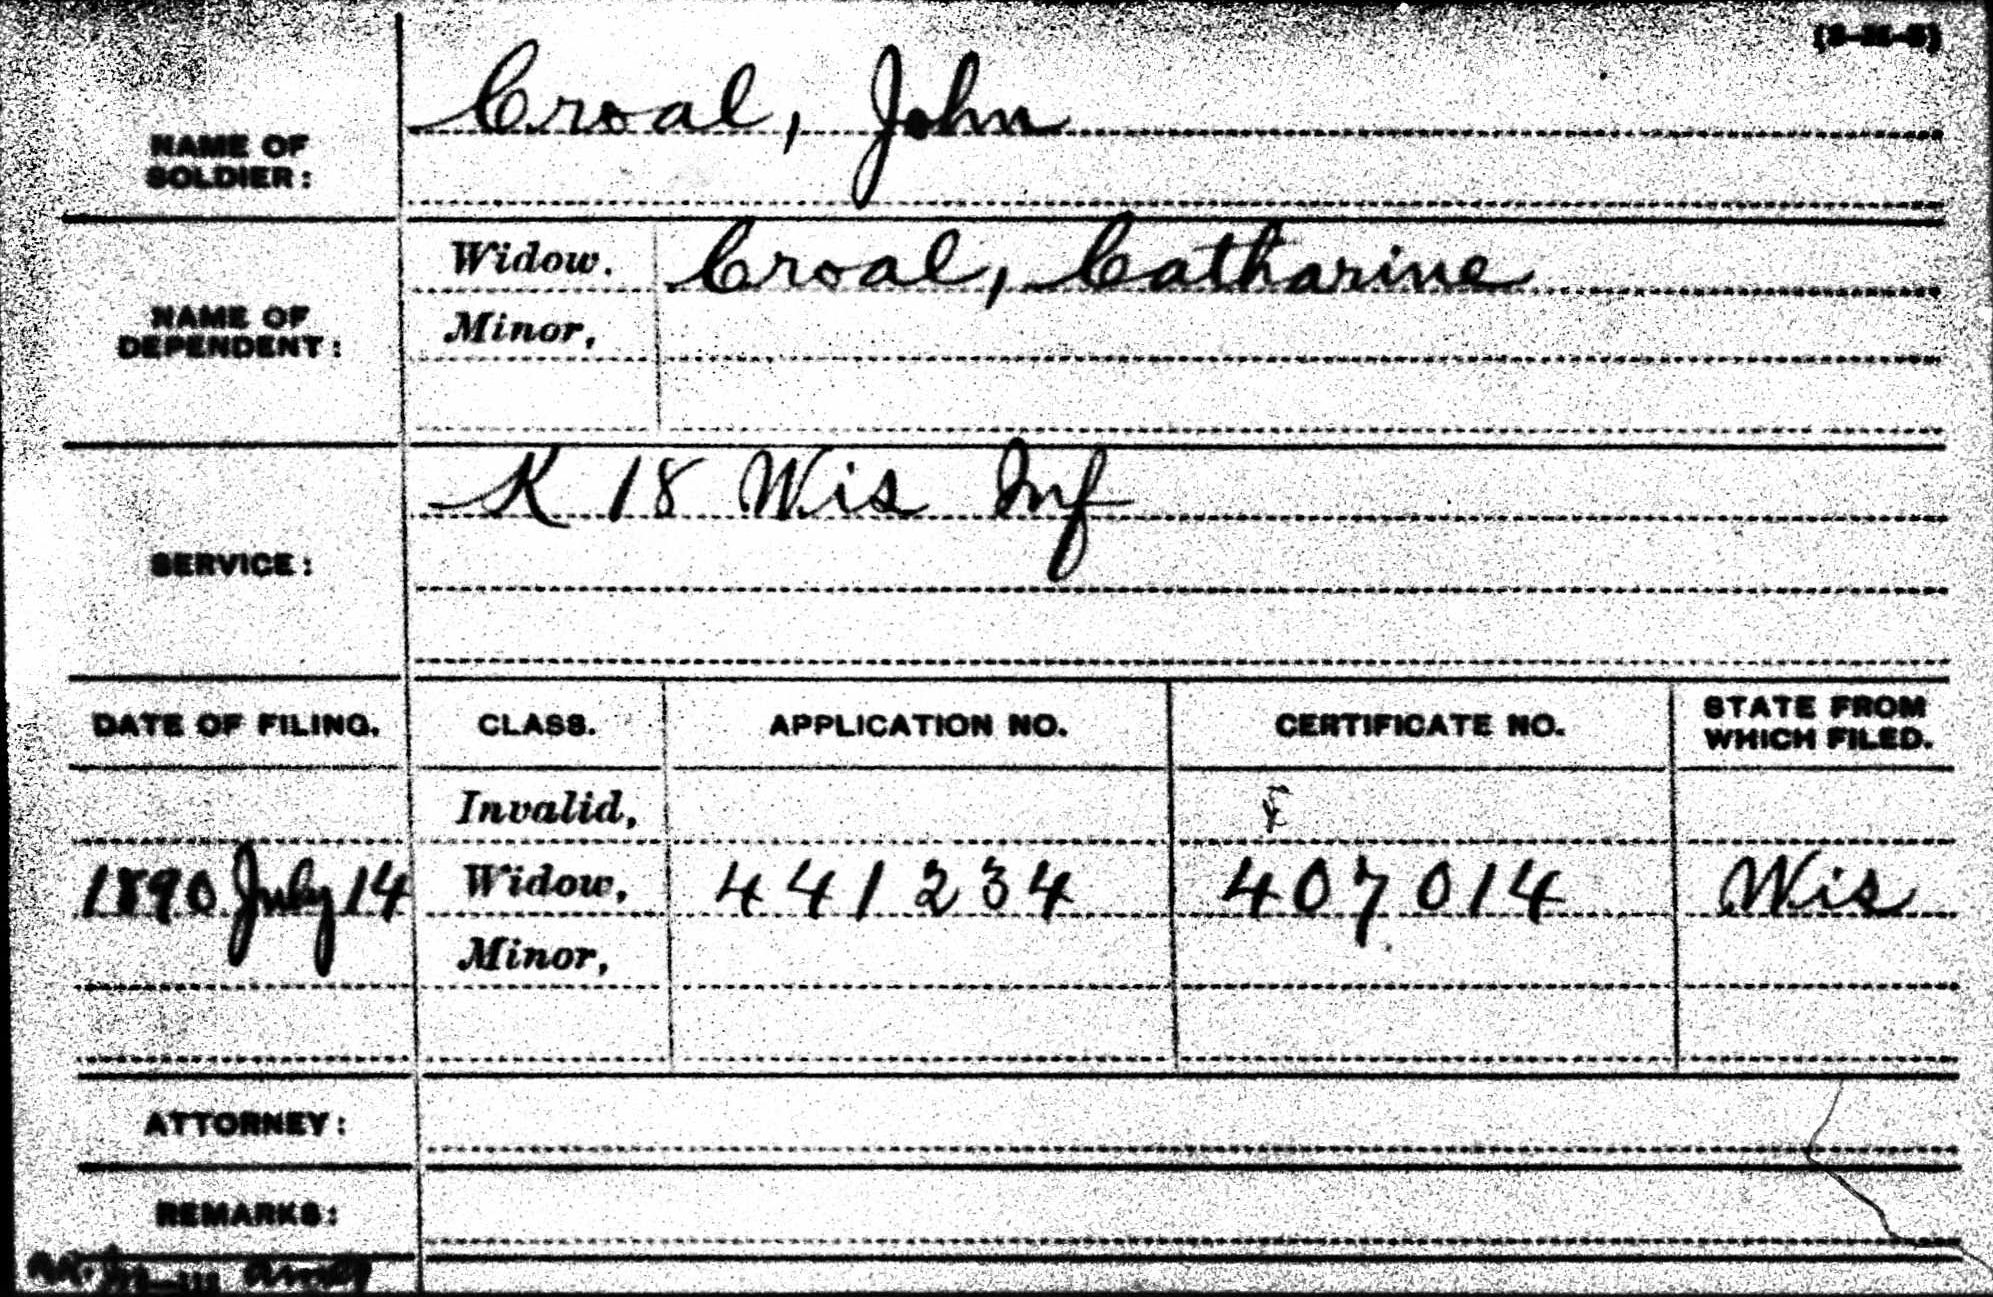 Croal, John
NAME OF
SOLDIER:
Widow. Croal, Catharine
NAME OF
DEPENDENT:
Minor,
K 18 Wis Inf
SERVICE:
DATE OF FILING. CLASS. APPLICATION NO. CERTIFICATE NO. STATE FROM
WHICH FILED.
Invalid,
1890 July 14 Widow, 441234 407014 Wis
Minor,
ATTORNEY:
REMARKS: